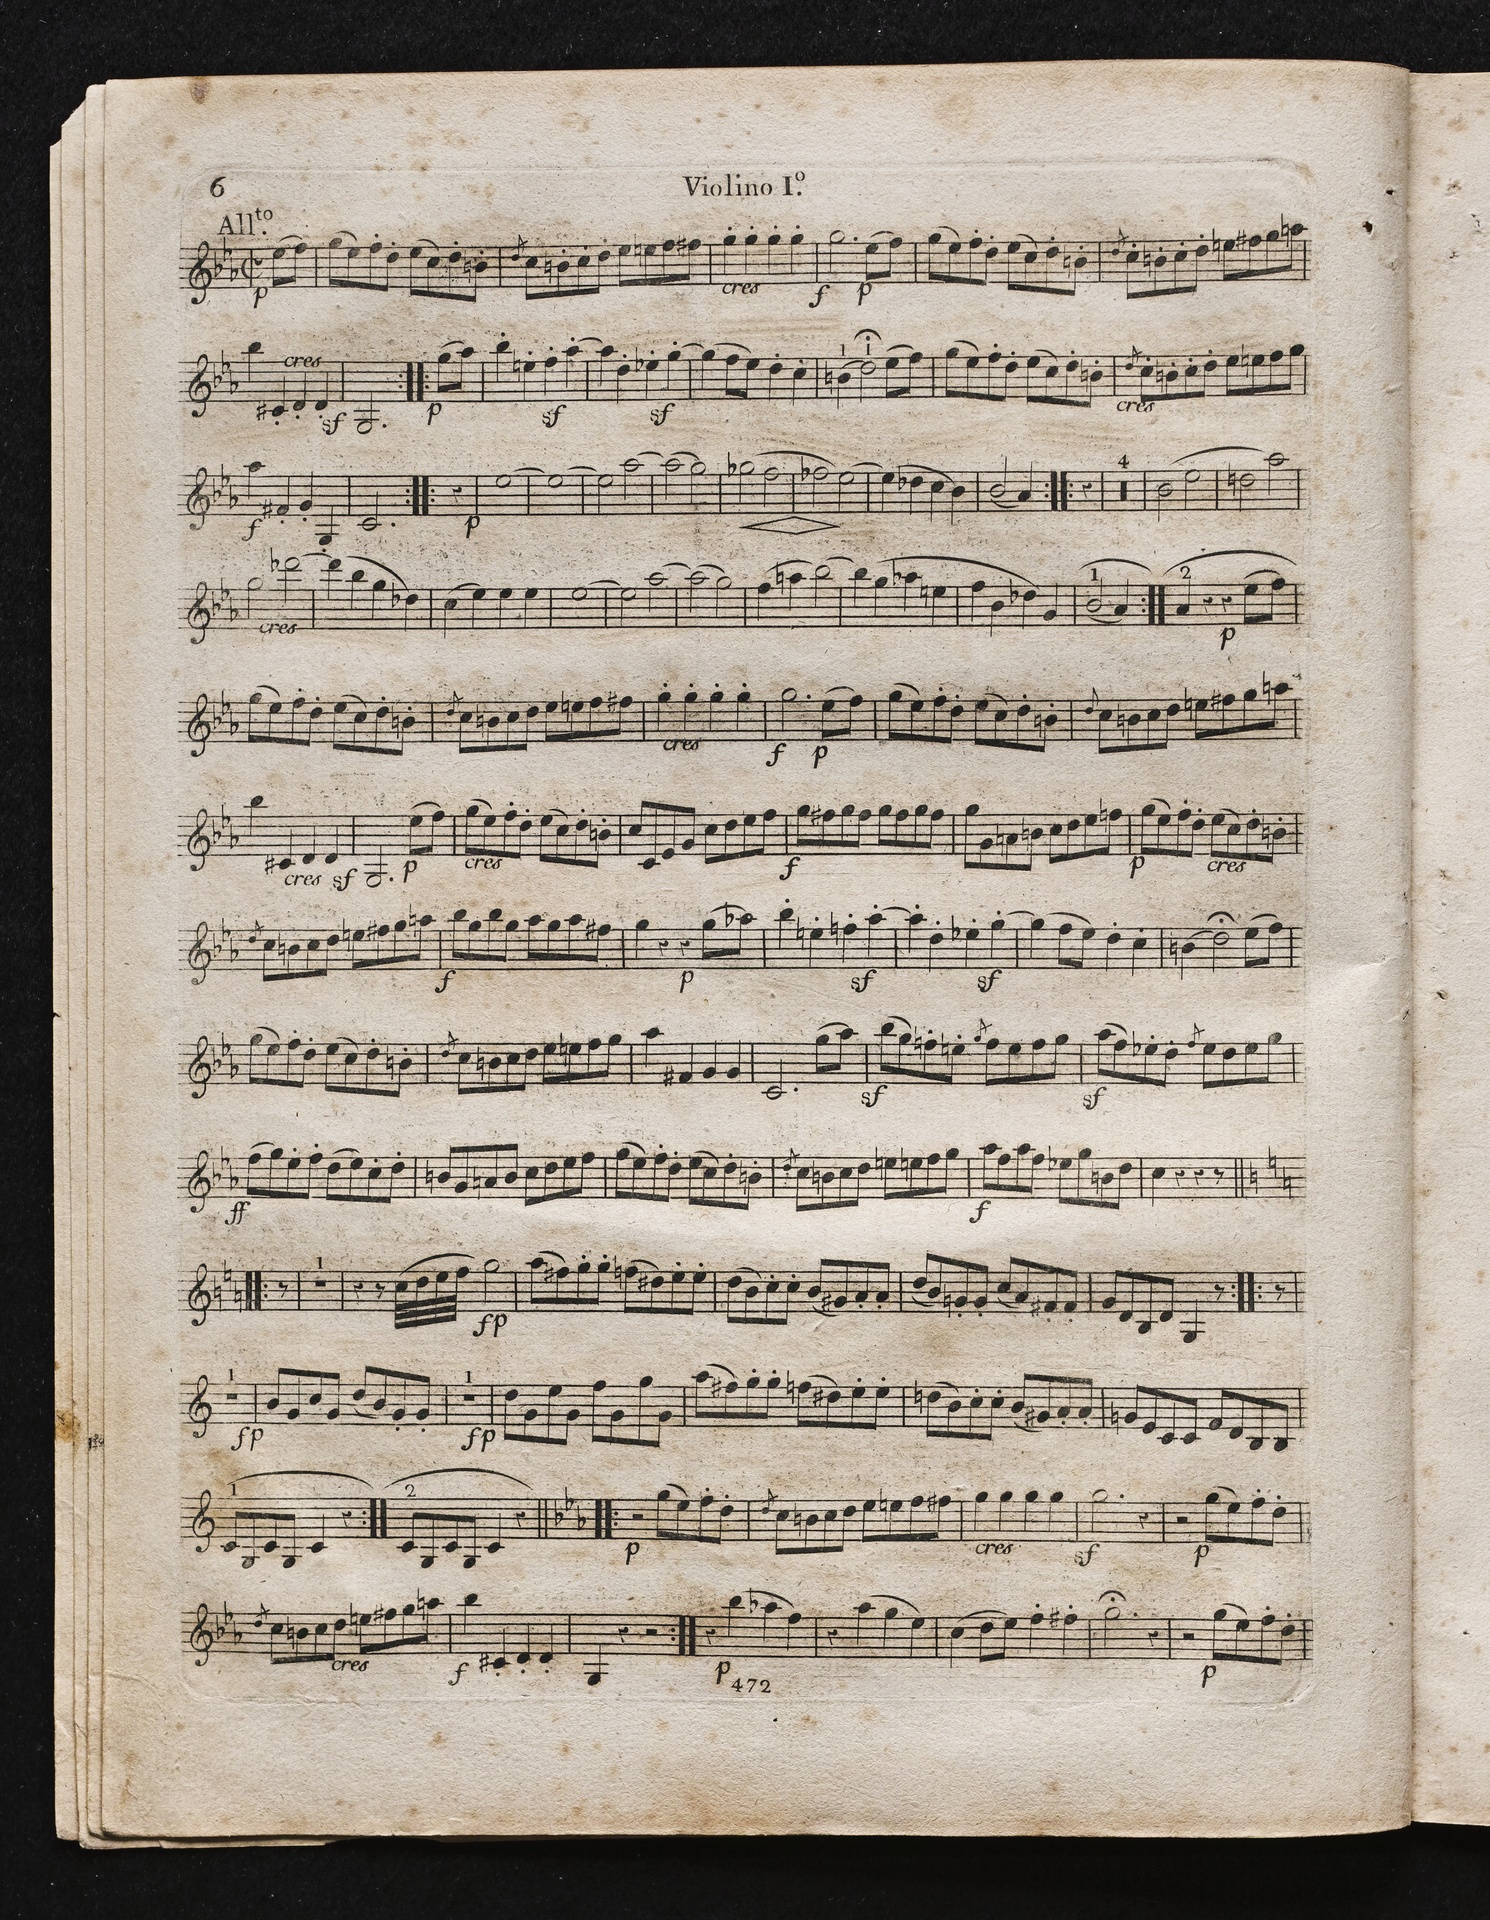 6
Violino Iº.
Allto.
p cres f p
cres sf p sf sf 1 1 cres
f p 4
cres 1 2 p
cres f p
cres sf p cres f p cres
f p sf sf
sf sf
ff f
1 fp
1 fp 1 fp
1 2 p cres sf p
cres f p p
472